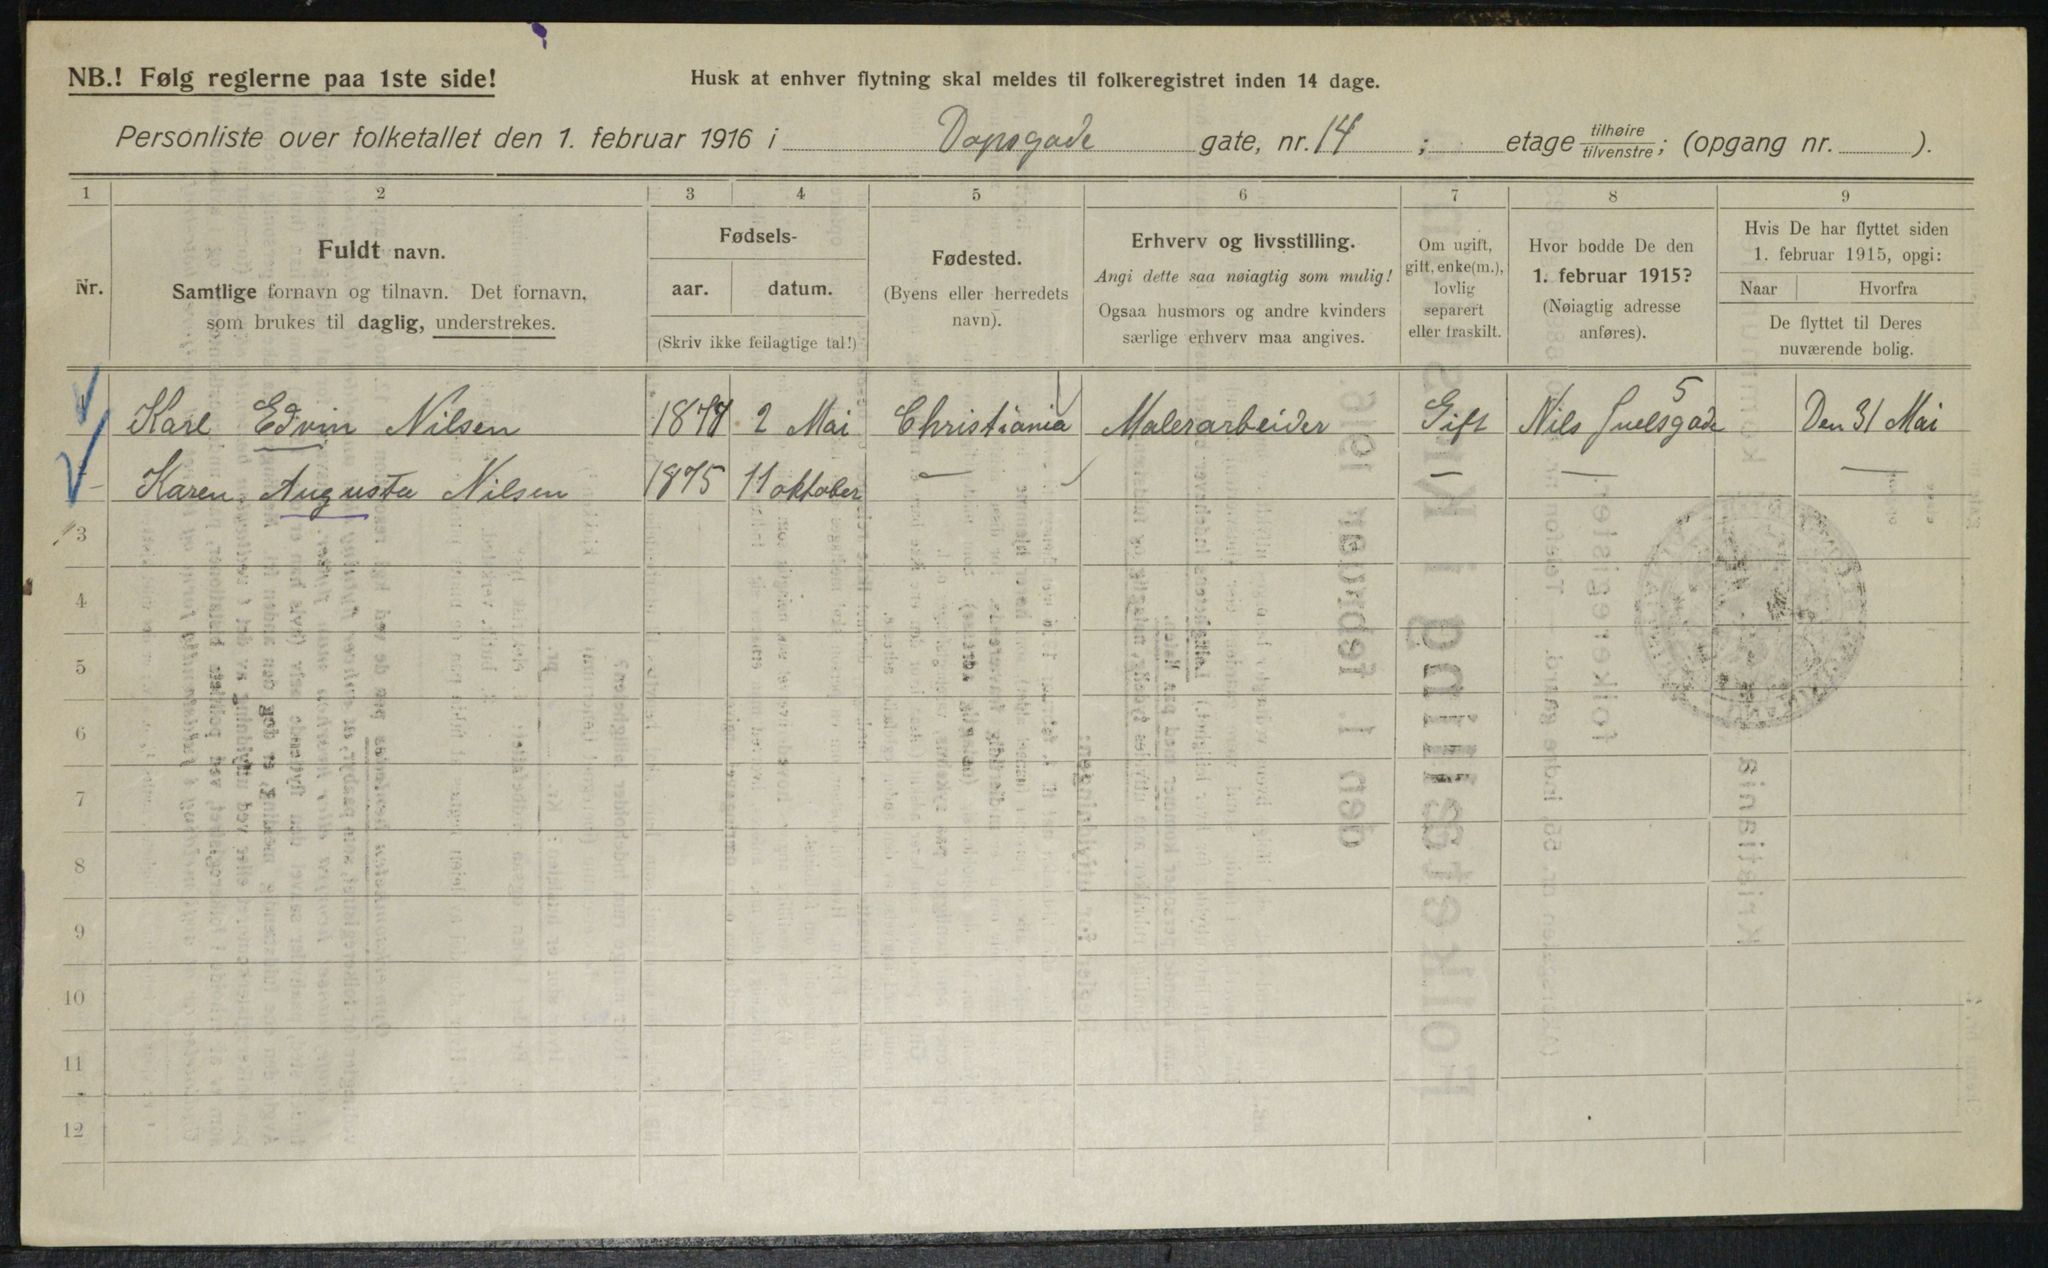 NB.! Følg reglerne paa 1ste side!
Husk at enhver flytning skal meldes til folkeregistret inden 14 dage.
Personliste over folketallet den 1. februar 1916 i Dopsgade gate, nr. 14 ; etage tilhøire/tilvenstre; (opgang nr. ).
1 2 3 4 5 6 7 8 9
Nr.
Fuldt navn.
Samtlige fornavn og tilnavn. Det fornavn,
som brukes til daglig, understrekes.
Fødsels-
aar. datum.
(Skriv ikke feilagtige tal!)
Fødested.
(Byens eller herredets
navn).
Erhverv og livsstilling.
Angi dette saa nøiagtig som mulig!
Ogsaa husmors og andre kvinders
særlige erhverv maa angives.
Om ugift,
gift, enke(m.),
lovlig
separert
eller fraskilt.
Hvor bodde De den
1. februar 1915?
(Nøiagtig adresse
anføres).
Hvis De har flyttet siden
1. februar 1915, opgi:
Naar Hvorfra
De flyttet til Deres
nuværende bolig.
Karl Edvin Nilsen 1877 2 Mai Christiania Malerarbeider Gift Nils Juelsgade 5 Den 31 Mai
Karen Augusta Nilsen 1875 11 oktober — — — —
3
4
5
6
7
8
9
10
11
12